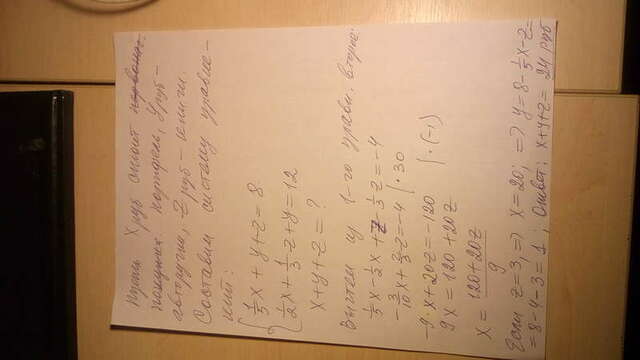 Пусть X руб стоит первонач.
покупка портфель, Y руб –
авторучка, Z руб – книги.
Составим систему уравне-
ний:
1/5 x + y + z = 8
1/2 x + 1/3 z + y = 12
x + y + z = ?
Вычтем из 1-го уравн. второе:
1/5 x - 1/2 x + z - 1/3 z = -4
-3/10 x + 2/3 z = -4 | · 30
-9 · x + 20z = -120 | · (-1)
9x = 120 + 20z
x = 120 + 20z / 9
Если z = 3, => x = 20; => y = 8 - 1/5 x - z =
= 8 - 4 - 3 = 1; Ответ: x + y + z = 24 руб